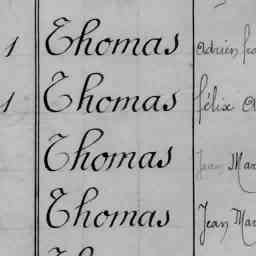 1 Thomas Adrien
1 Thomas Félix
Thomas Jean Mar
Thomas Jean Mar